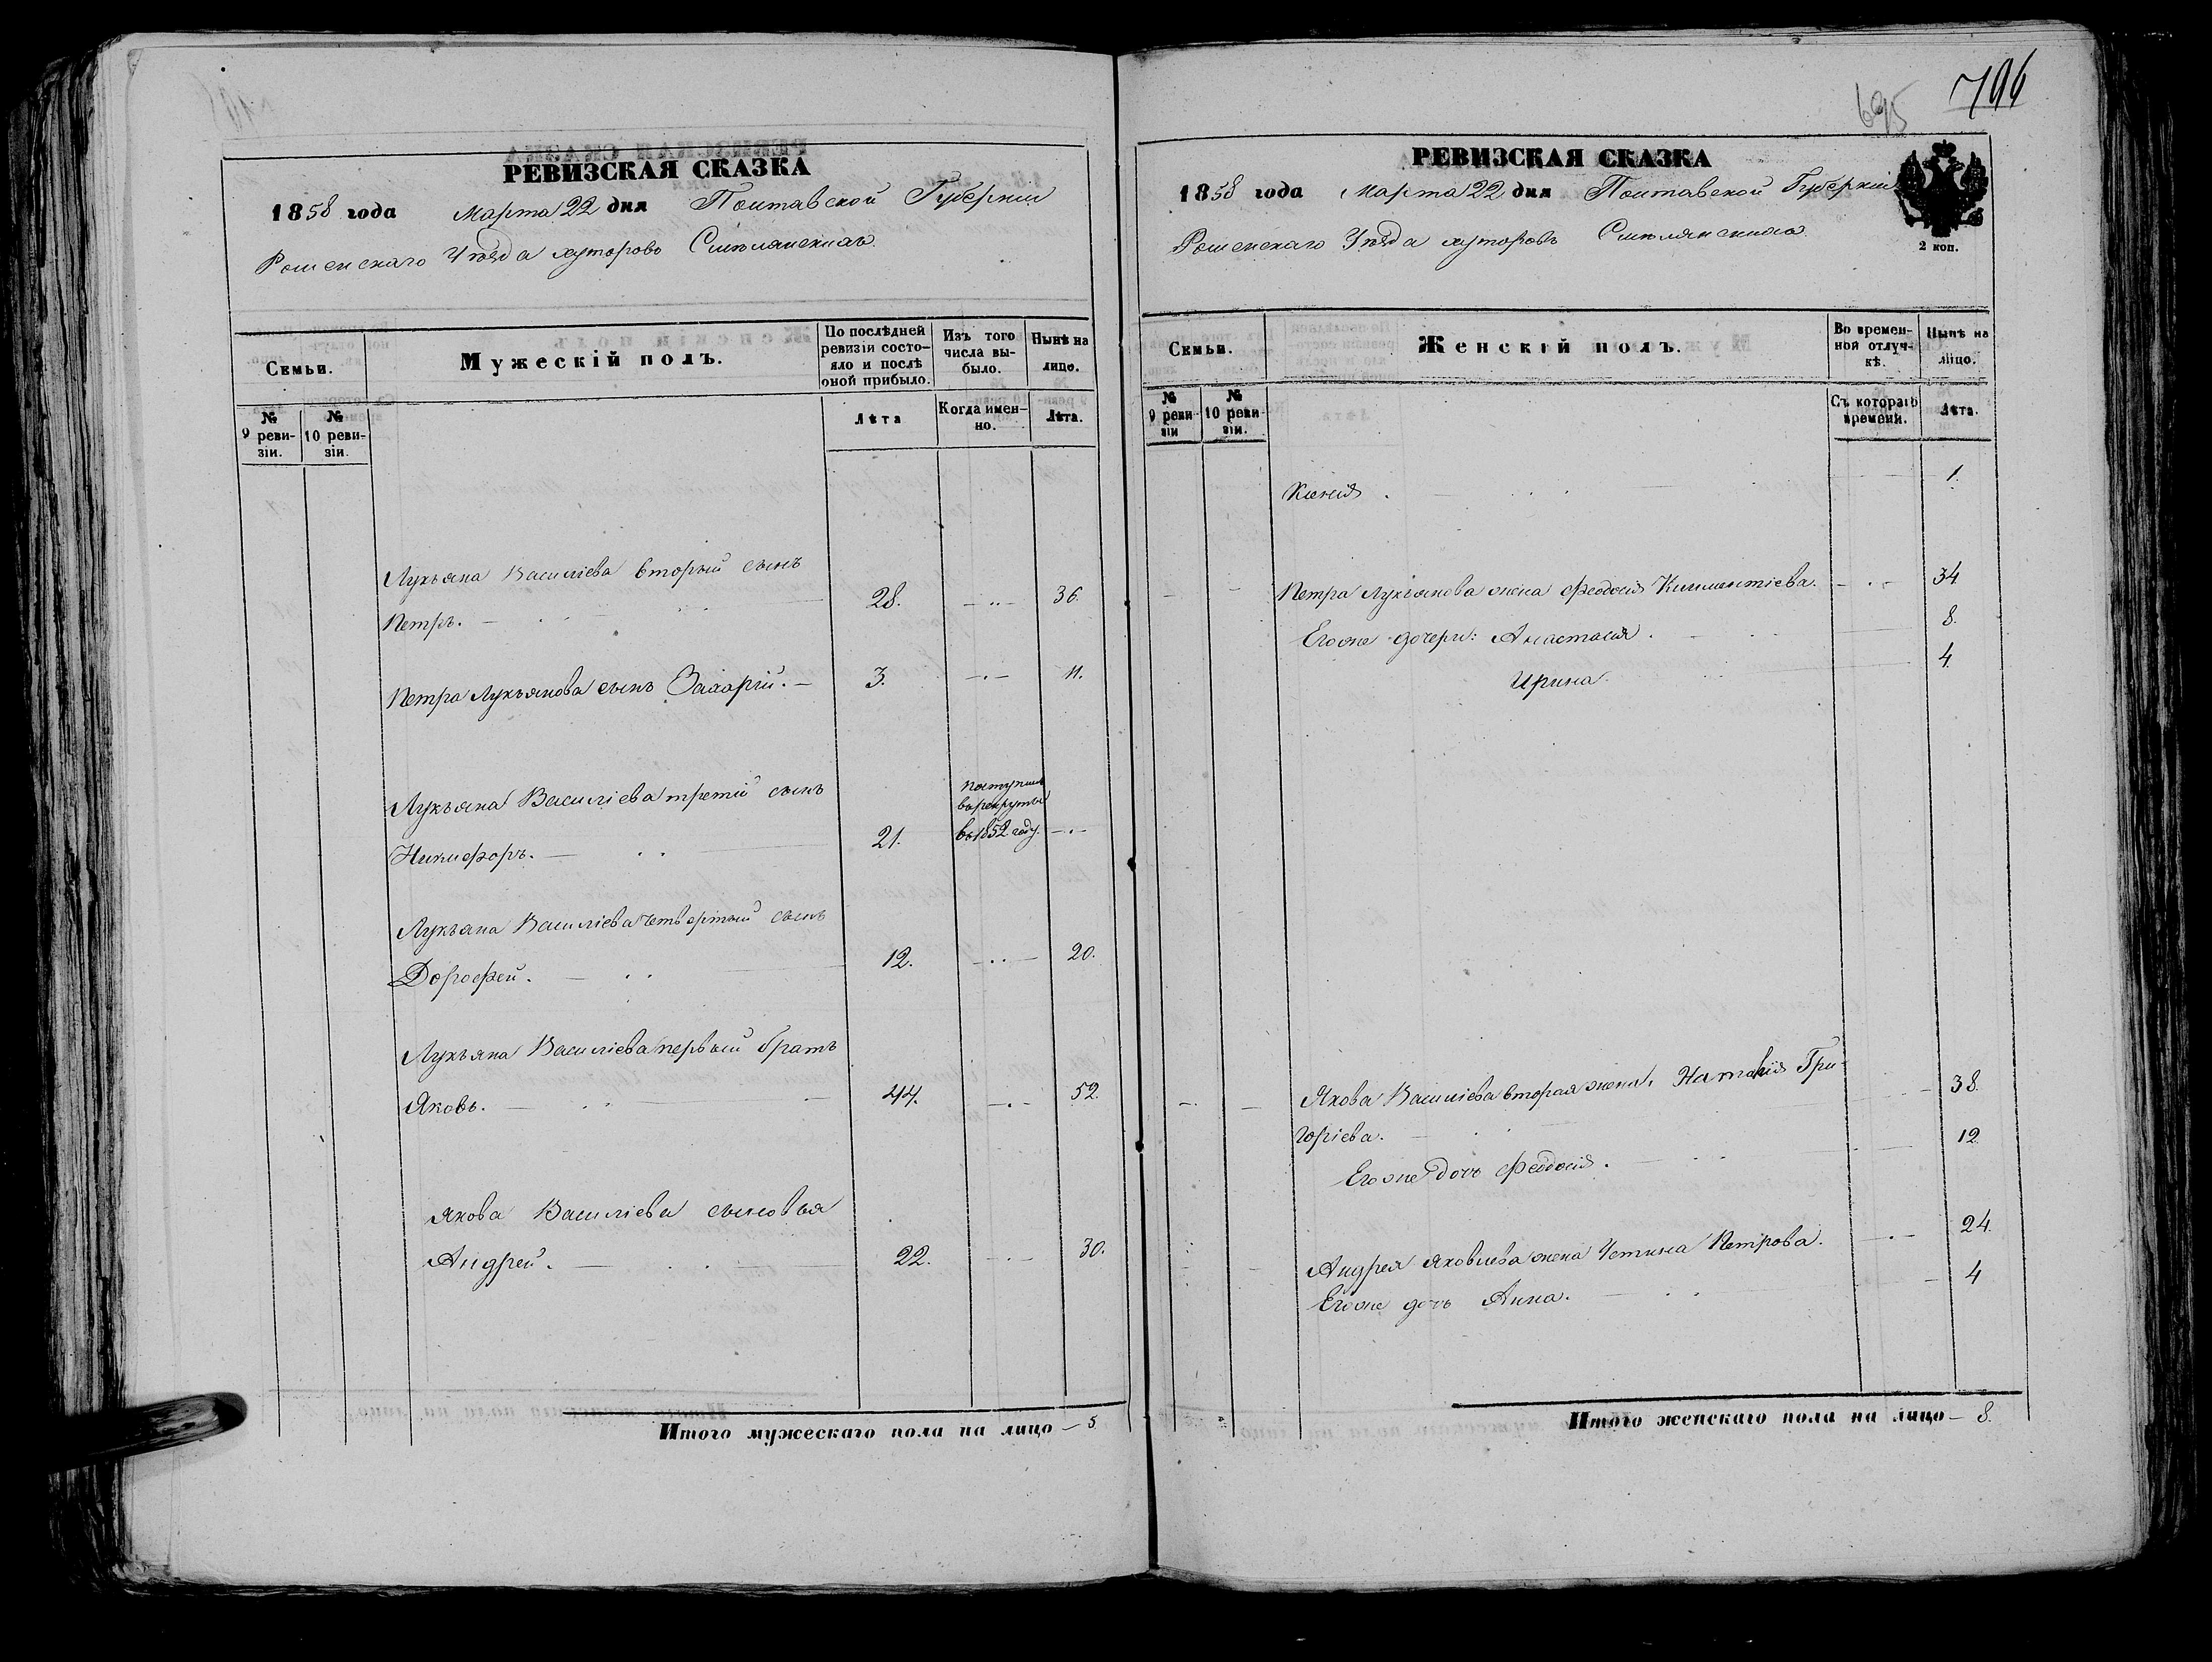 РЕВИЗСКАЯ СКАЗКА
1858 года Марта 22 дня Полтавской Губерніи
Роменскаго Уѣзда хуторовъ Смѣлянскихъ
Семьи.
Мужескій полъ.
По послѣдней ревизіи состояло и послѣ оной прибыло.
Изъ того числа выбыло.
Нынѣ на лицо.
№ 9 ревизіи.
№ 10 ревизіи.
Лѣта
Когда именно.
Лѣта.
Лукьяна Василіева вторый сынъ
Петръ. 28. 36.
Петра Лукьянова сынъ Захарій. 3. 11.
Лукьяна Василіева третій сынъ
Никифоръ. 21.
поступилъ
въ рекруты
въ 1852 году.
Лукьяна Василіева четвертый сынъ
Дорофей. 12. 20.
Лукьяна Василіева первый братъ
Яковъ. 44. 52.
Якова Василіева сыновья
Андрей. 22. 30.
Итого мужескаго пола на лицо — 5.
695 706
РЕВИЗСКАЯ СКАЗКА
1858 года Марта 22 дня Полтавской Губерніи
Роменскаго Уѣзда хуторовъ Смѣлянскихъ
2 коп.
Семьи.
Женскій полъ.
Во временной отлучкѣ.
Нынѣ на лицо.
№ 9 ревизіи
№ 10 ревизіи.
Съ котораго времени.
Лѣта.
Ксенія. 1.
Петра Лукьянова жена Феодосія Климентіева. 34
Его же дочери: Анастасія. 8.
Ирина. 4.
Якова Василіева вторая жена Наталія Гри- 38.
горіева.
Его же дочь Феодосія. 12
Андрея Яковлева жена Устина Петрова. 24.
Его же дочь Анна. 4
Итого женскаго пола на лицо — 8.